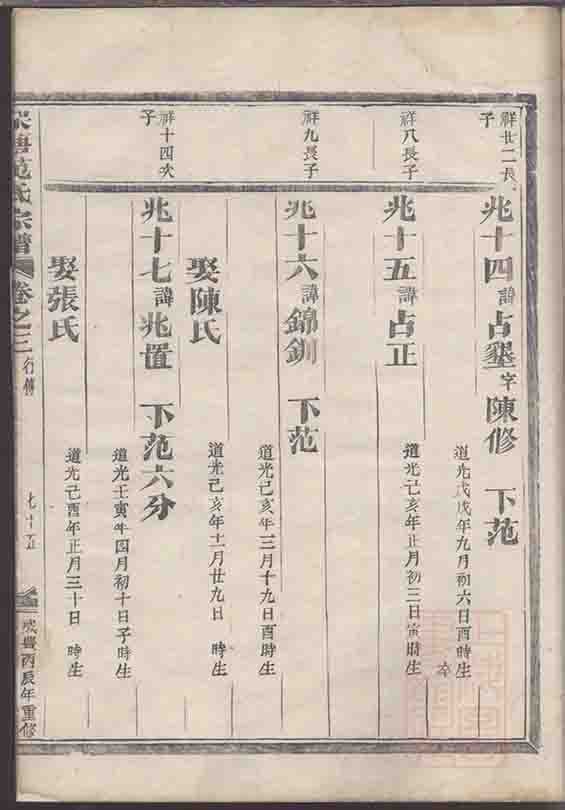 祥廿二長
子
兆十四諱占墾字陳修 下范
道光戊戌年九月初六日酉時生
卒
祥八長子
兆十五諱占正
道光己亥年正月初三日寅時生
祥九長子
兆十六諱錦釧 下范
道光己亥年三月十九日酉時生
娶陳氏
道光己亥年十一月廿九日 時生
祥十四次
子
兆十七諱兆置 下范六分
道光壬寅年四月初十日子時生
娶張氏
道光己酉年正月三十日 時生
范氏宗譜 卷之三 行傳 七十五 咸豐丙辰年重修